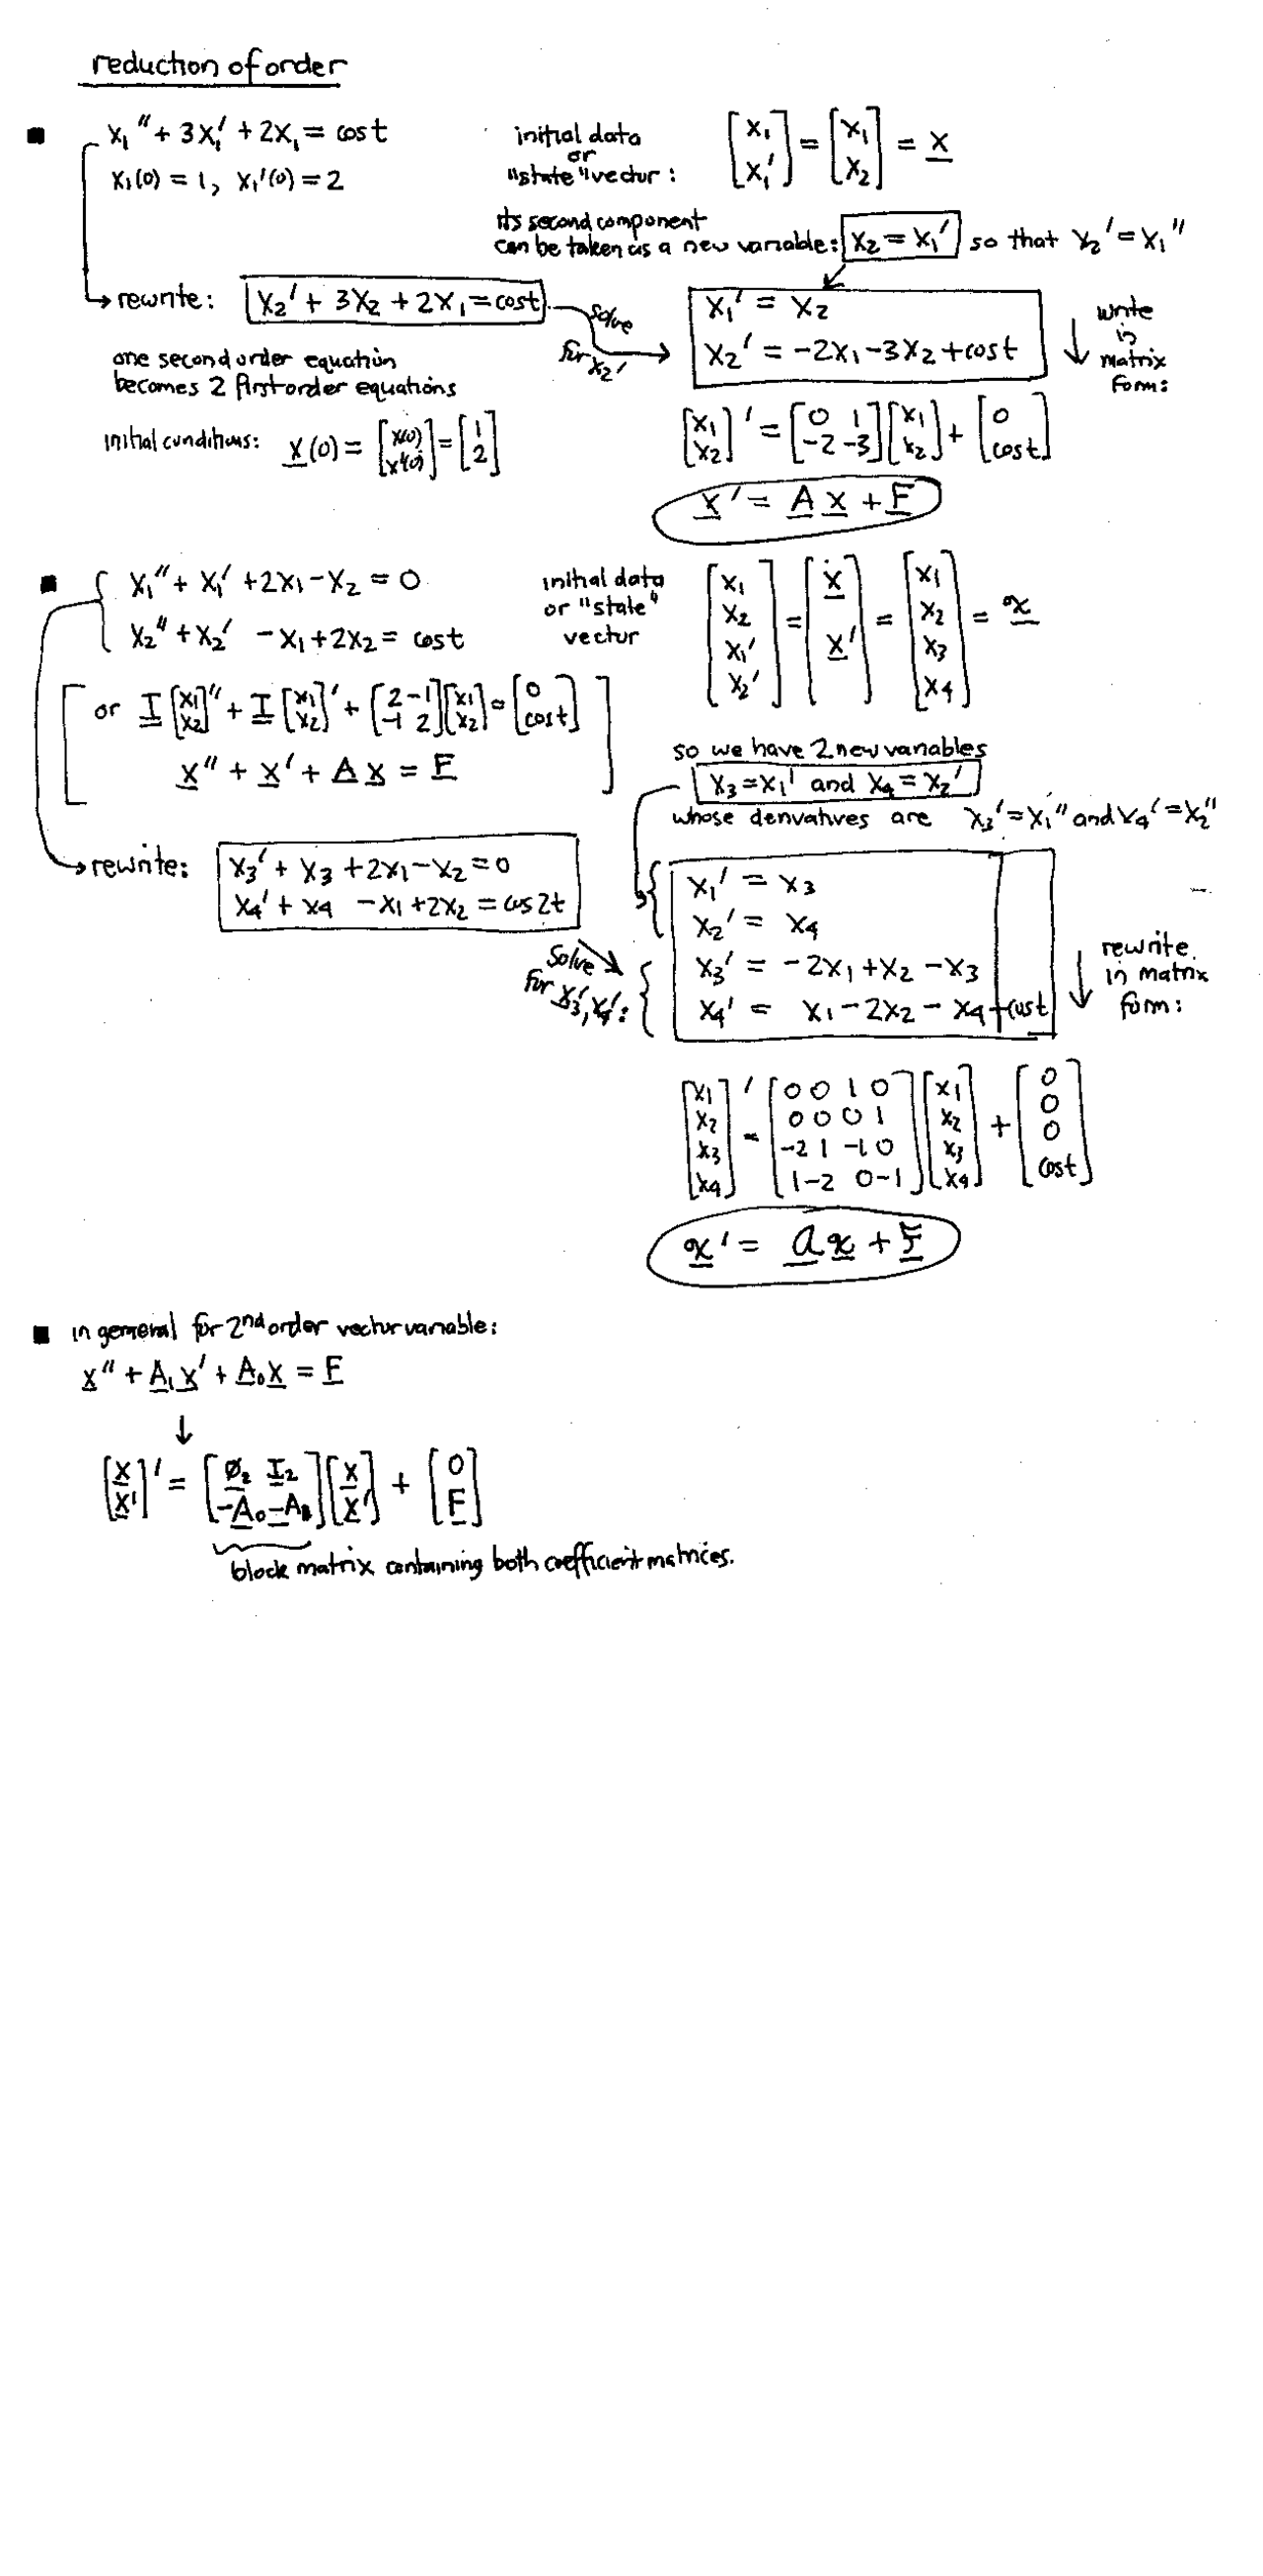 reduction of order
■ x₁'' + 3x₁' + 2x₁ = cos t
x₁(0) = 1, x₁'(0) = 2
initial data
or
"state" vector :
[x₁; x₁'] = [x₁; x₂] = x
its second component
can be taken as a new variable: x₂ = x₁' so that x₂' = x₁''
→ rewrite: x₂' + 3x₂ + 2x₁ = cos t
solve
for x₂'
x₁' = x₂
x₂' = -2x₁ - 3x₂ + cos t
↓ write
in
matrix
form:
one second order equation
becomes 2 first order equations
initial conditions: x(0) = [x(0); x'(0)] = [1; 2]
[x₁; x₂]' = [0 1; -2 -3] [x₁; x₂] + [0; cos t]
x' = A x + F
■ { x₁'' + x₁' + 2x₁ - x₂ = 0
x₂'' + x₂' - x₁ + 2x₂ = cos t
initial data
or "state"
vector
[x₁; x₂; x₁'; x₂'] = [x; x'] = [x₁; x₂; x₃; x₄] = x
[ or I [x₁; x₂]'' + I [x₁; x₂]' + [2 -1; -1 2] [x₁; x₂] = [0; cos t]
x'' + x' + A x = F ]
so we have 2 new variables
x₃ = x₁' and x₄ = x₂'
whose derivatives are x₃' = x₁'' and x₄' = x₂''
→ rewrite: x₃' + x₃ + 2x₁ - x₂ = 0
x₄' + x₄ - x₁ + 2x₂ = cos 2t
Solve
for x₃', x₄':
x₁' = x₃
x₂' = x₄
x₃' = -2x₁ + x₂ - x₃
x₄' = x₁ - 2x₂ - x₄ + cos t
↓ rewrite
in matrix
form:
[x₁; x₂; x₃; x₄]' = [0 0 1 0; 0 0 0 1; -2 1 -1 0; 1 -2 0 -1] [x₁; x₂; x₃; x₄] + [0; 0; 0; cos t]
x' = a x + F
■ in general for 2nd order vector variable:
x'' + A₁ x' + A₀ x = F
↓
[x; x']' = [Ø₂ I₂; -A₀ -A₁] [x; x'] + [0; F]
block matrix containing both coefficient matrices.